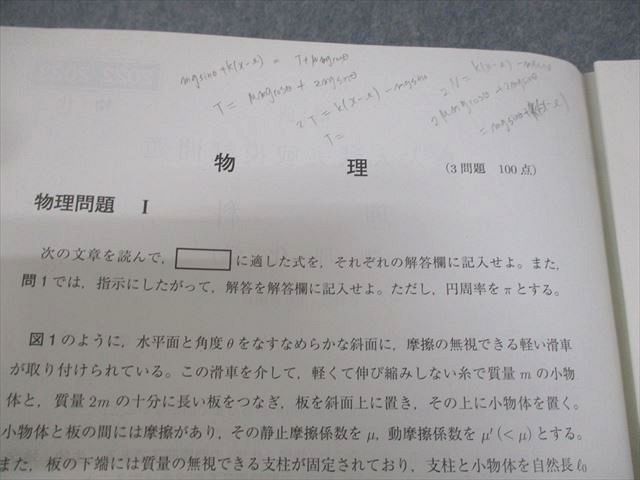 mgsinθ+k(x-l) = T+μmgcosθ
T= μmgcosθ + 2mgsinθ
2T= k(x-l) - mgsinθ
T=
2μmgcosθ+2mgsinθ
= mgsinθ+k(x-l)
物 理 (3問題 100点)
物理問題 Ⅰ
次の文章を読んで, に適した式を, それぞれの解答欄に記入せよ。また,
問1では, 指示にしたがって, 解答を解答欄に記入せよ。ただし, 円周率をπとする。
図1のように, 水平面と角度θをなすなめらかな斜面に, 摩擦の無視できる軽い滑車
が取り付けられている。この滑車を介して, 軽くて伸び縮みしない糸で質量 m の小物
体と, 質量 2m の十分に長い板をつなぎ, 板を斜面上に置き, その上に小物体を置く。
小物体と板の間には摩擦があり, その静止摩擦係数をμ, 動摩擦係数をμ′(<μ)とする。
また, 板の下端には質量の無視できる支柱が固定されており, 支柱と小物体を自然長ℓ0